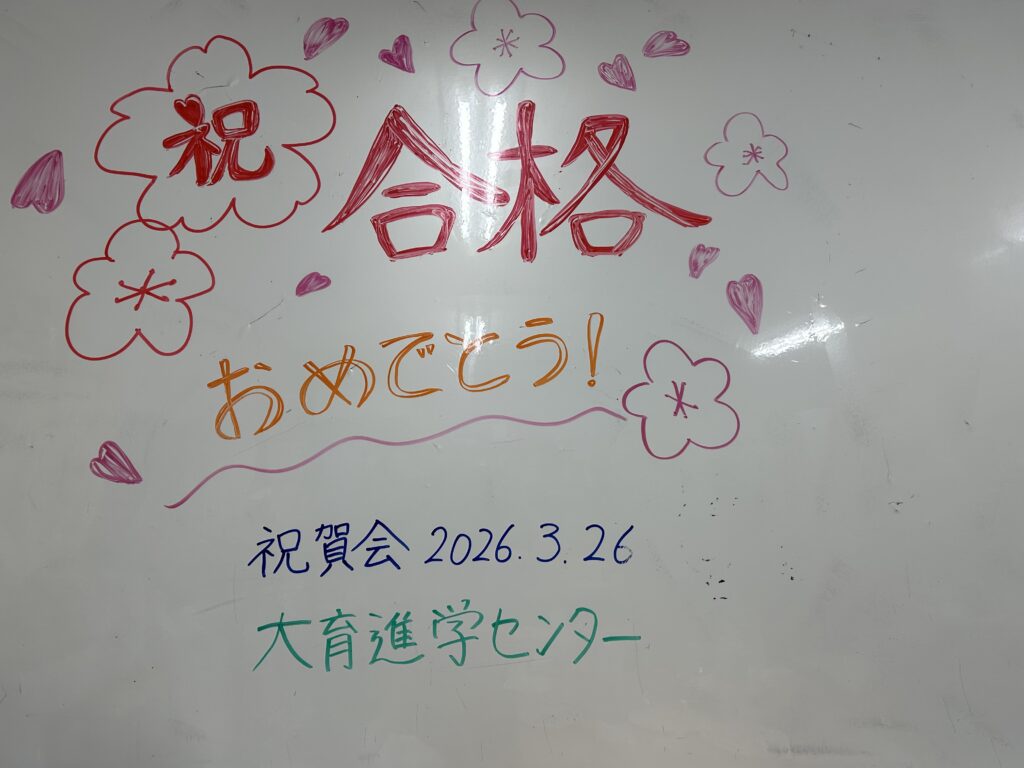 祝 合格
おめでとう!
祝賀会 2026.3.26
大育進学センター